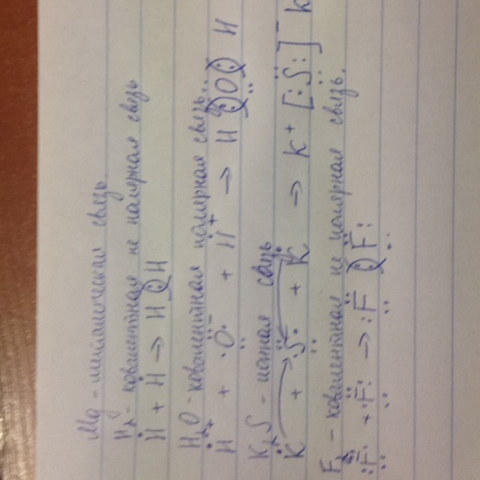 Mg - металическая связь
H₂ - ковалентная не полярная связь
H + H → H : H
H₂O - ковалентная полярная связь
H + O + H → H : O : H
K₂S - ионная связь
K + S + K → K⁺ [:S:]⁻ K
F₂ - ковалентная не полярная связь.
:F + F: → :F : F: